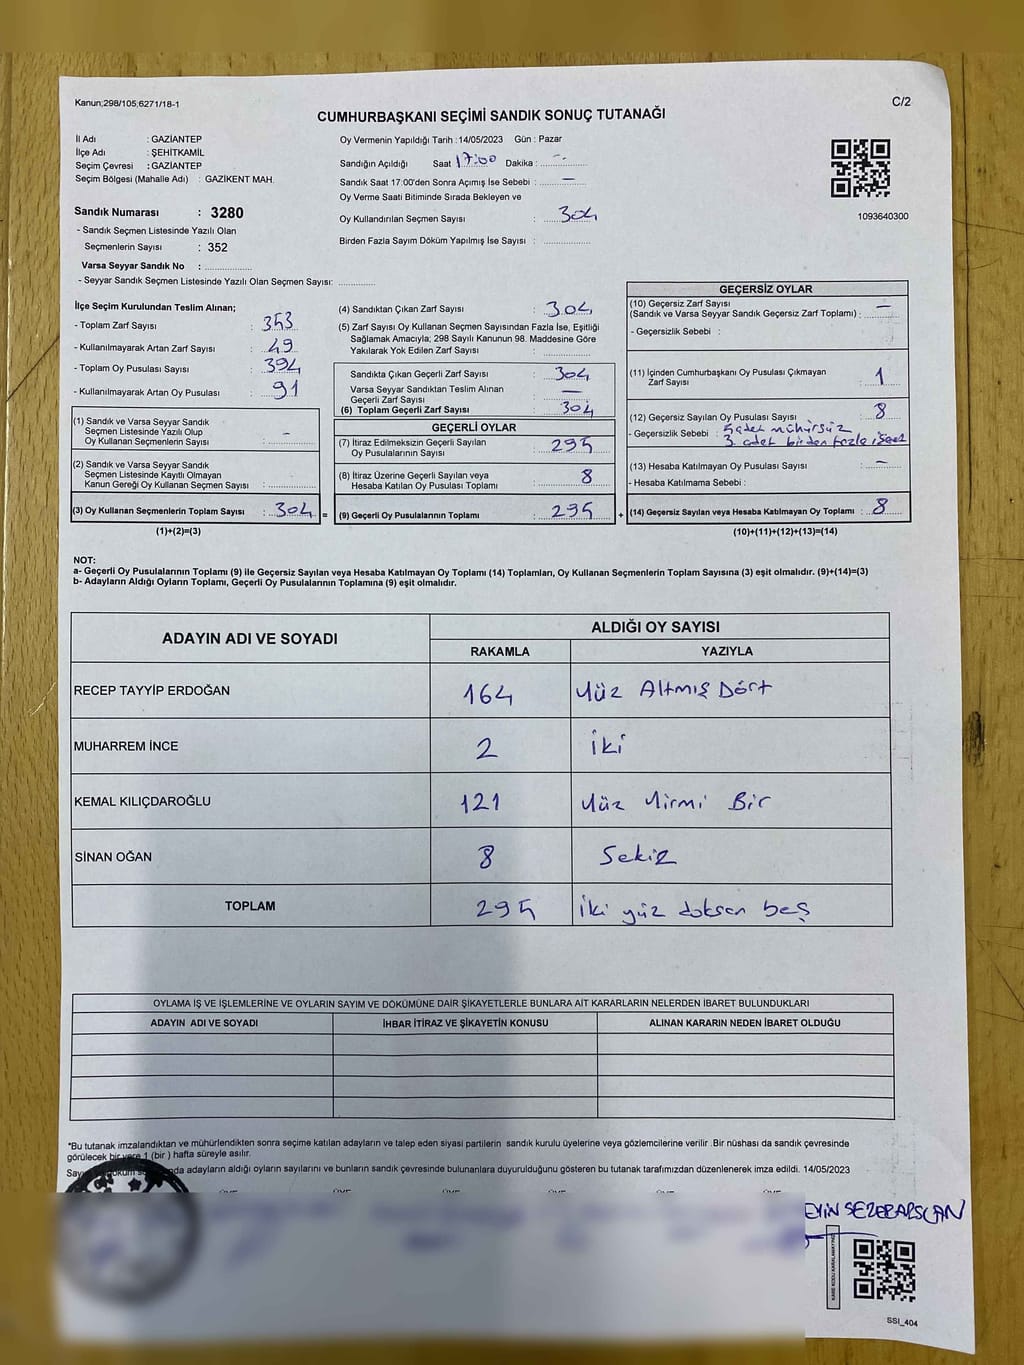 Kanun;298/105;6271/18-1
C/2
CUMHURBAŞKANI SEÇİMİ SANDIK SONUÇ TUTANAĞI
İl Adı : GAZİANTEP
İlçe Adı : ŞEHİTKAMİL
Seçim Çevresi : GAZİANTEP
Seçim Bölgesi (Mahalle Adı) : GAZİKENT MAH.
Sandık Numarası : 3280
- Sandık Seçmen Listesinde Yazılı Olan
Seçmenlerin Sayısı : 352
Varsa Seyyar Sandık No :
- Seyyar Sandık Seçmen Listesinde Yazılı Olan Seçmen Sayısı:
Oy Vermenin Yapıldığı Tarih :14/05/2023 Gün : Pazar
Sandığın Açıldığı Saat 17:00 Dakika : --
Sandık Saat 17:00'den Sonra Açımış İse Sebebi : —
Oy Verme Saati Bitiminde Sırada Bekleyen ve
Oy Kullandırılan Seçmen Sayısı : 304
Birden Fazla Sayım Döküm Yapılmış İse Sayısı :
1093640300
İlçe Seçim Kurulundan Teslim Alınan;
- Toplam Zarf Sayısı : 353
- Kullanılmayarak Artan Zarf Sayısı : 49
- Toplam Oy Pusulası Sayısı : 394
- Kullanılmayarak Artan Oy Pusulası : 91
(1) Sandık ve Varsa Seyyar Sandık
Seçmen Listesinde Yazılı Olup
Oy Kullanan Seçmenlerin Sayısı : -
(2) Sandık ve Varsa Seyyar Sandık
Seçmen Listesinde Kayıtlı Olmayan
Kanun Gereği Oy Kullanan Seçmen Sayısı :
(3) Oy Kullanan Seçmenlerin Toplam Sayısı : 304 =
(1)+(2)=(3)
(4) Sandıktan Çıkan Zarf Sayısı : 304
(5) Zarf Sayısı Oy Kullanan Seçmen Sayısından Fazla İse, Eşitliği
Sağlamak Amacıyla; 298 Sayılı Kanunun 98. Maddesine Göre
Yakılarak Yok Edilen Zarf Sayısı :
Sandıkta Çıkan Geçerli Zarf Sayısı : 304
Varsa Seyyar Sandıktan Teslim Alınan
Geçerli Zarf Sayısı : —
(6) Toplam Geçerli Zarf Sayısı : 304
GEÇERLİ OYLAR
(7) İtiraz Edilmeksizin Geçerli Sayılan
Oy Pusulasının Sayısı : 295
(8) İtiraz Üzerine Geçerli Sayılan veya
Hesaba Katılan Oy Pusulası Toplamı : 8
(9) Geçerli Oy Pusulalarının Toplamı : 295 +
GEÇERSİZ OYLAR
(10) Geçersiz Zarf Sayısı —
(Sandık ve Varsa Seyyar Sandık Geçersiz Zarf Toplamı) :
- Geçersizlik Sebebi :
(11) İçinden Cumhurbaşkanı Oy Pusulası Çıkmayan
Zarf Sayısı : 1
(12) Geçersiz Sayılan Oy Pusulası Sayısı : 8
- Geçersizlik Sebebi : 5 adet mühürsüz
3 adet birden fazla
(13) Hesaba Katılmayan Oy Pusulası Sayısı : —
- Hesaba Katılmama Sebebi :
(14) Geçersiz Sayılan veya Hesaba Katılmayan Oy Toplamı : 8
(10)+(11)+(12)+(13)=(14)
NOT:
a- Geçerli Oy Pusulalarının Toplamı (9) ile Geçersiz Sayılan veya Hesaba Katılmayan Oy Toplamı (14) Toplamları, Oy Kullanan Seçmenlerin Toplam Sayısına (3) eşit olmalıdır. (9)+(14)=(3)
b- Adayların Aldığı Oyların Toplamı, Geçerli Oy Pusulalarının Toplamına (9) eşit olmalıdır.
ADAYIN ADI VE SOYADI
ALDIĞI OY SAYISI
RAKAMLA YAZIYLA
RECEP TAYYİP ERDOĞAN 164 Yüz Altmış Dört
MUHARREM İNCE 2 İki
KEMAL KILIÇDAROĞLU 121 Yüz Yirmi Bir
SİNAN OĞAN 8 Sekiz
TOPLAM 295 İki yüz doksan beş
OYLAMA İŞ VE İŞLEMLERİNE VE OYLARIN SAYIM VE DÖKÜMÜNE DAİR ŞİKAYETLERLE BUNLARA AİT KARARLARIN NELERDEN İBARET BULUNDUKLARI
ADAYIN ADI VE SOYADI İHBAR İTİRAZ VE ŞİKAYETİN KONUSU ALINAN KARARIN NEDEN İBARET OLDUĞU
*Bu tutanak imzalandıktan ve mühürlendikten sonra seçime katılan adayların ve talep eden siyasi partilerin sandık kurulu üyelerine veya gözlemcilerine verilir .Bir nüshası da sandık çevresinde
görülecek bir yere 1 (bir ) hafta süreyle asılır.
adayların aldığı oyların sayılarını ve bunların sandık çevresinde bulunanlara duyurulduğunu gösteren bu tutanak tarafımızdan düzenlenerek imza edildi. 14/05/2023
KARE KODU KARALAMAYINIZ
SSI_404